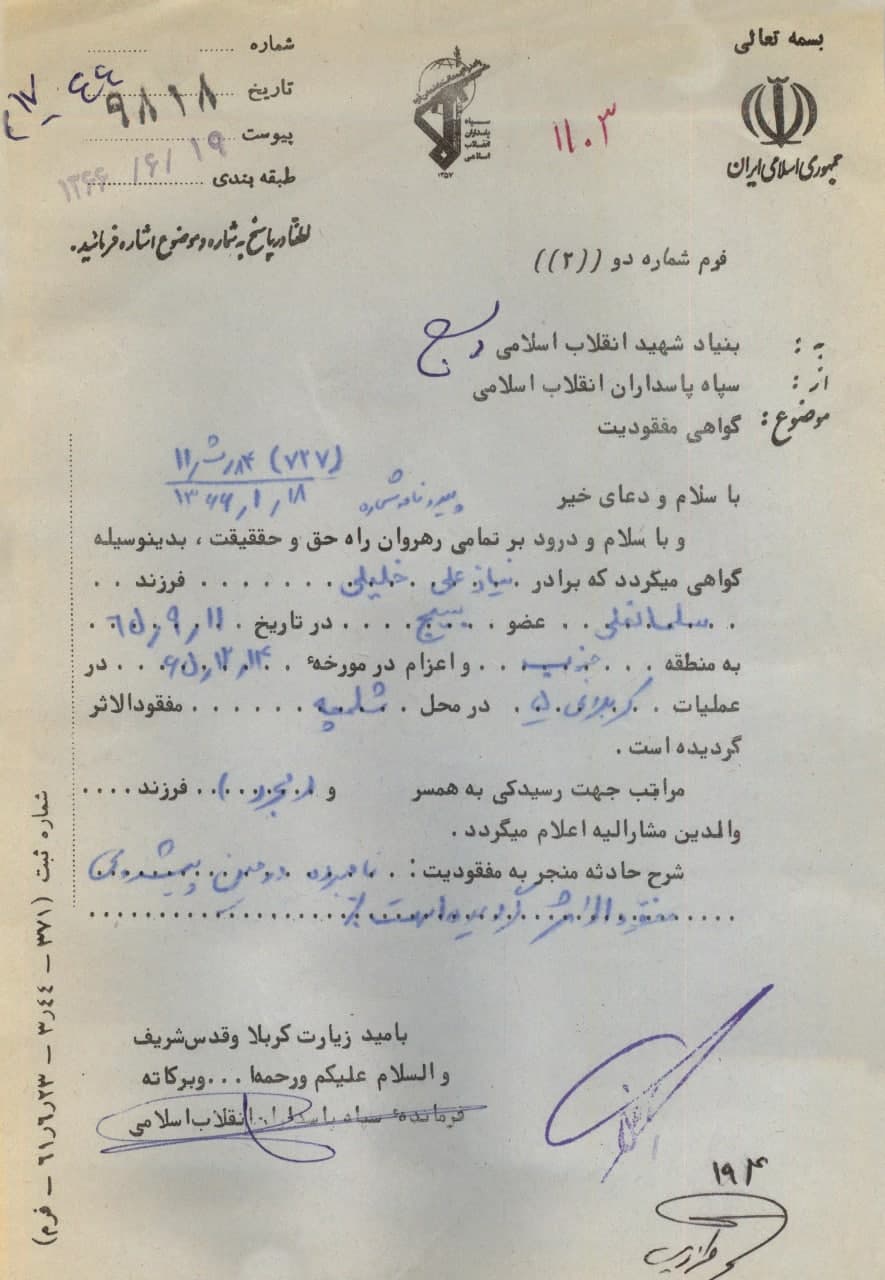 بسمه تعالی
جمهوری اسلامی ایران
۱۱۰۳
سپاه پاسداران انقلاب اسلامی
۱۳۵۷
شماره
تاریخ ۹۸۱۸
پیوست
طبقه بندی ۱۳۶۶/۶/۱۹
لطفا در پاسخ به شماره و موضوع اشاره فرمائید.
فرم شماره دو ((۲))
به : بنیاد شهید انقلاب اسلامی
از : سپاه پاسداران انقلاب اسلامی
موضوع : گواهی مفقودیت
با سلام و دعای خیر پیرو نامه شماره
۱۳۶۶٫۱٫۱۸
و با سلام و درود بر تمامی رهروان راه حق و حققیقت ، بدینوسیله
گواهی میگردد که برادر نیاز علی خلیلی فرزند
سلمانعلی عضو بسیج در تاریخ ۶۵٫۹٫۱۱
به منطقه جنوب و اعزام در مورخهٔ ۶۵٫۱۲٫۱۴ در
عملیات کربلای ۵ در محل شلمچه مفقودالاثر
گردیده است .
مراتب جهت رسیدکی به همسر و (مجرد) فرزند
والدین مشارالیه اعلام میگردد .
شرح حادثه منجر به مفقودیت : نامبرده در حین پیشروی
مفقودالاثر گردیده است
بامید زیارت کربلا وقدس‌شریف
و السلام علیکم ورحمه‌ا...وبرکاته
فرماندهٔ سپاه پاسداران انقلاب اسلامی
۱۹۴
شماره ثبت (۳۷۱ – ۳٫۴۴ – ۶۱٫۶٫۲۳ – فرم)